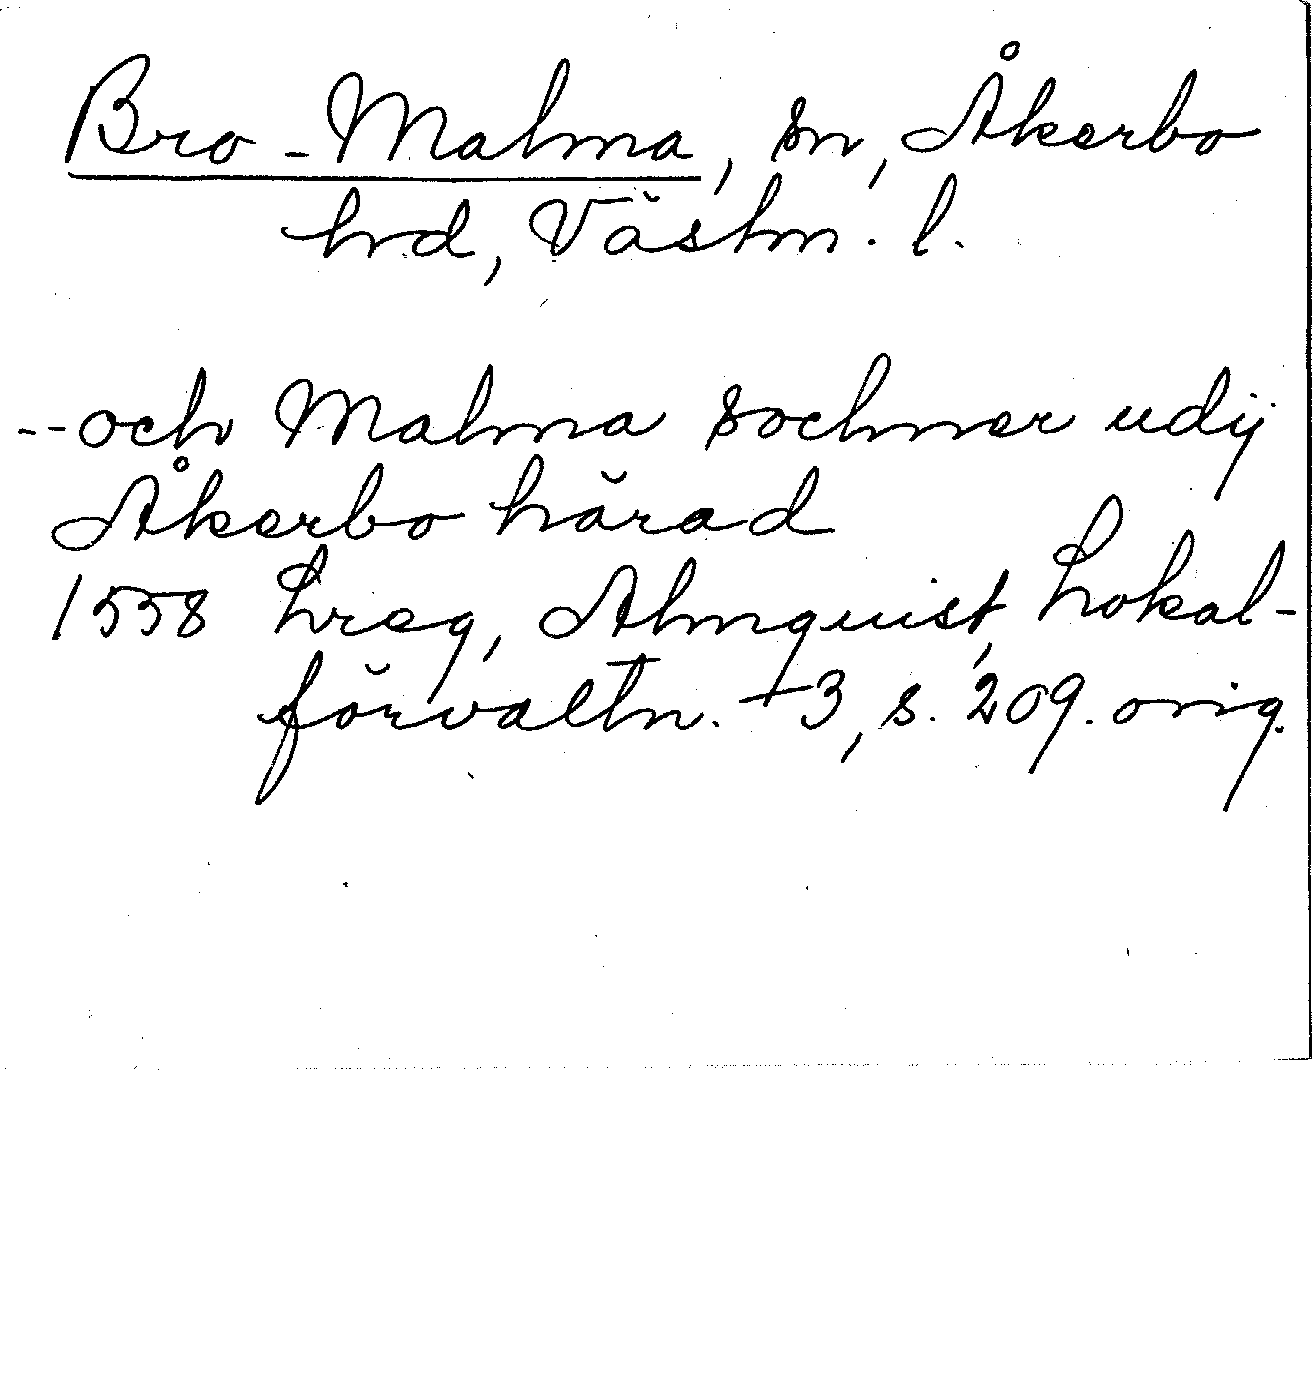 Bro-Malma, sn, Åkerbo
hrd, Västm. l.
--och Malma sochner udij
Åkerbo härad
1558 Lreg, Almquist, Lokal-
förvaltn. +3, s. 209. orig.